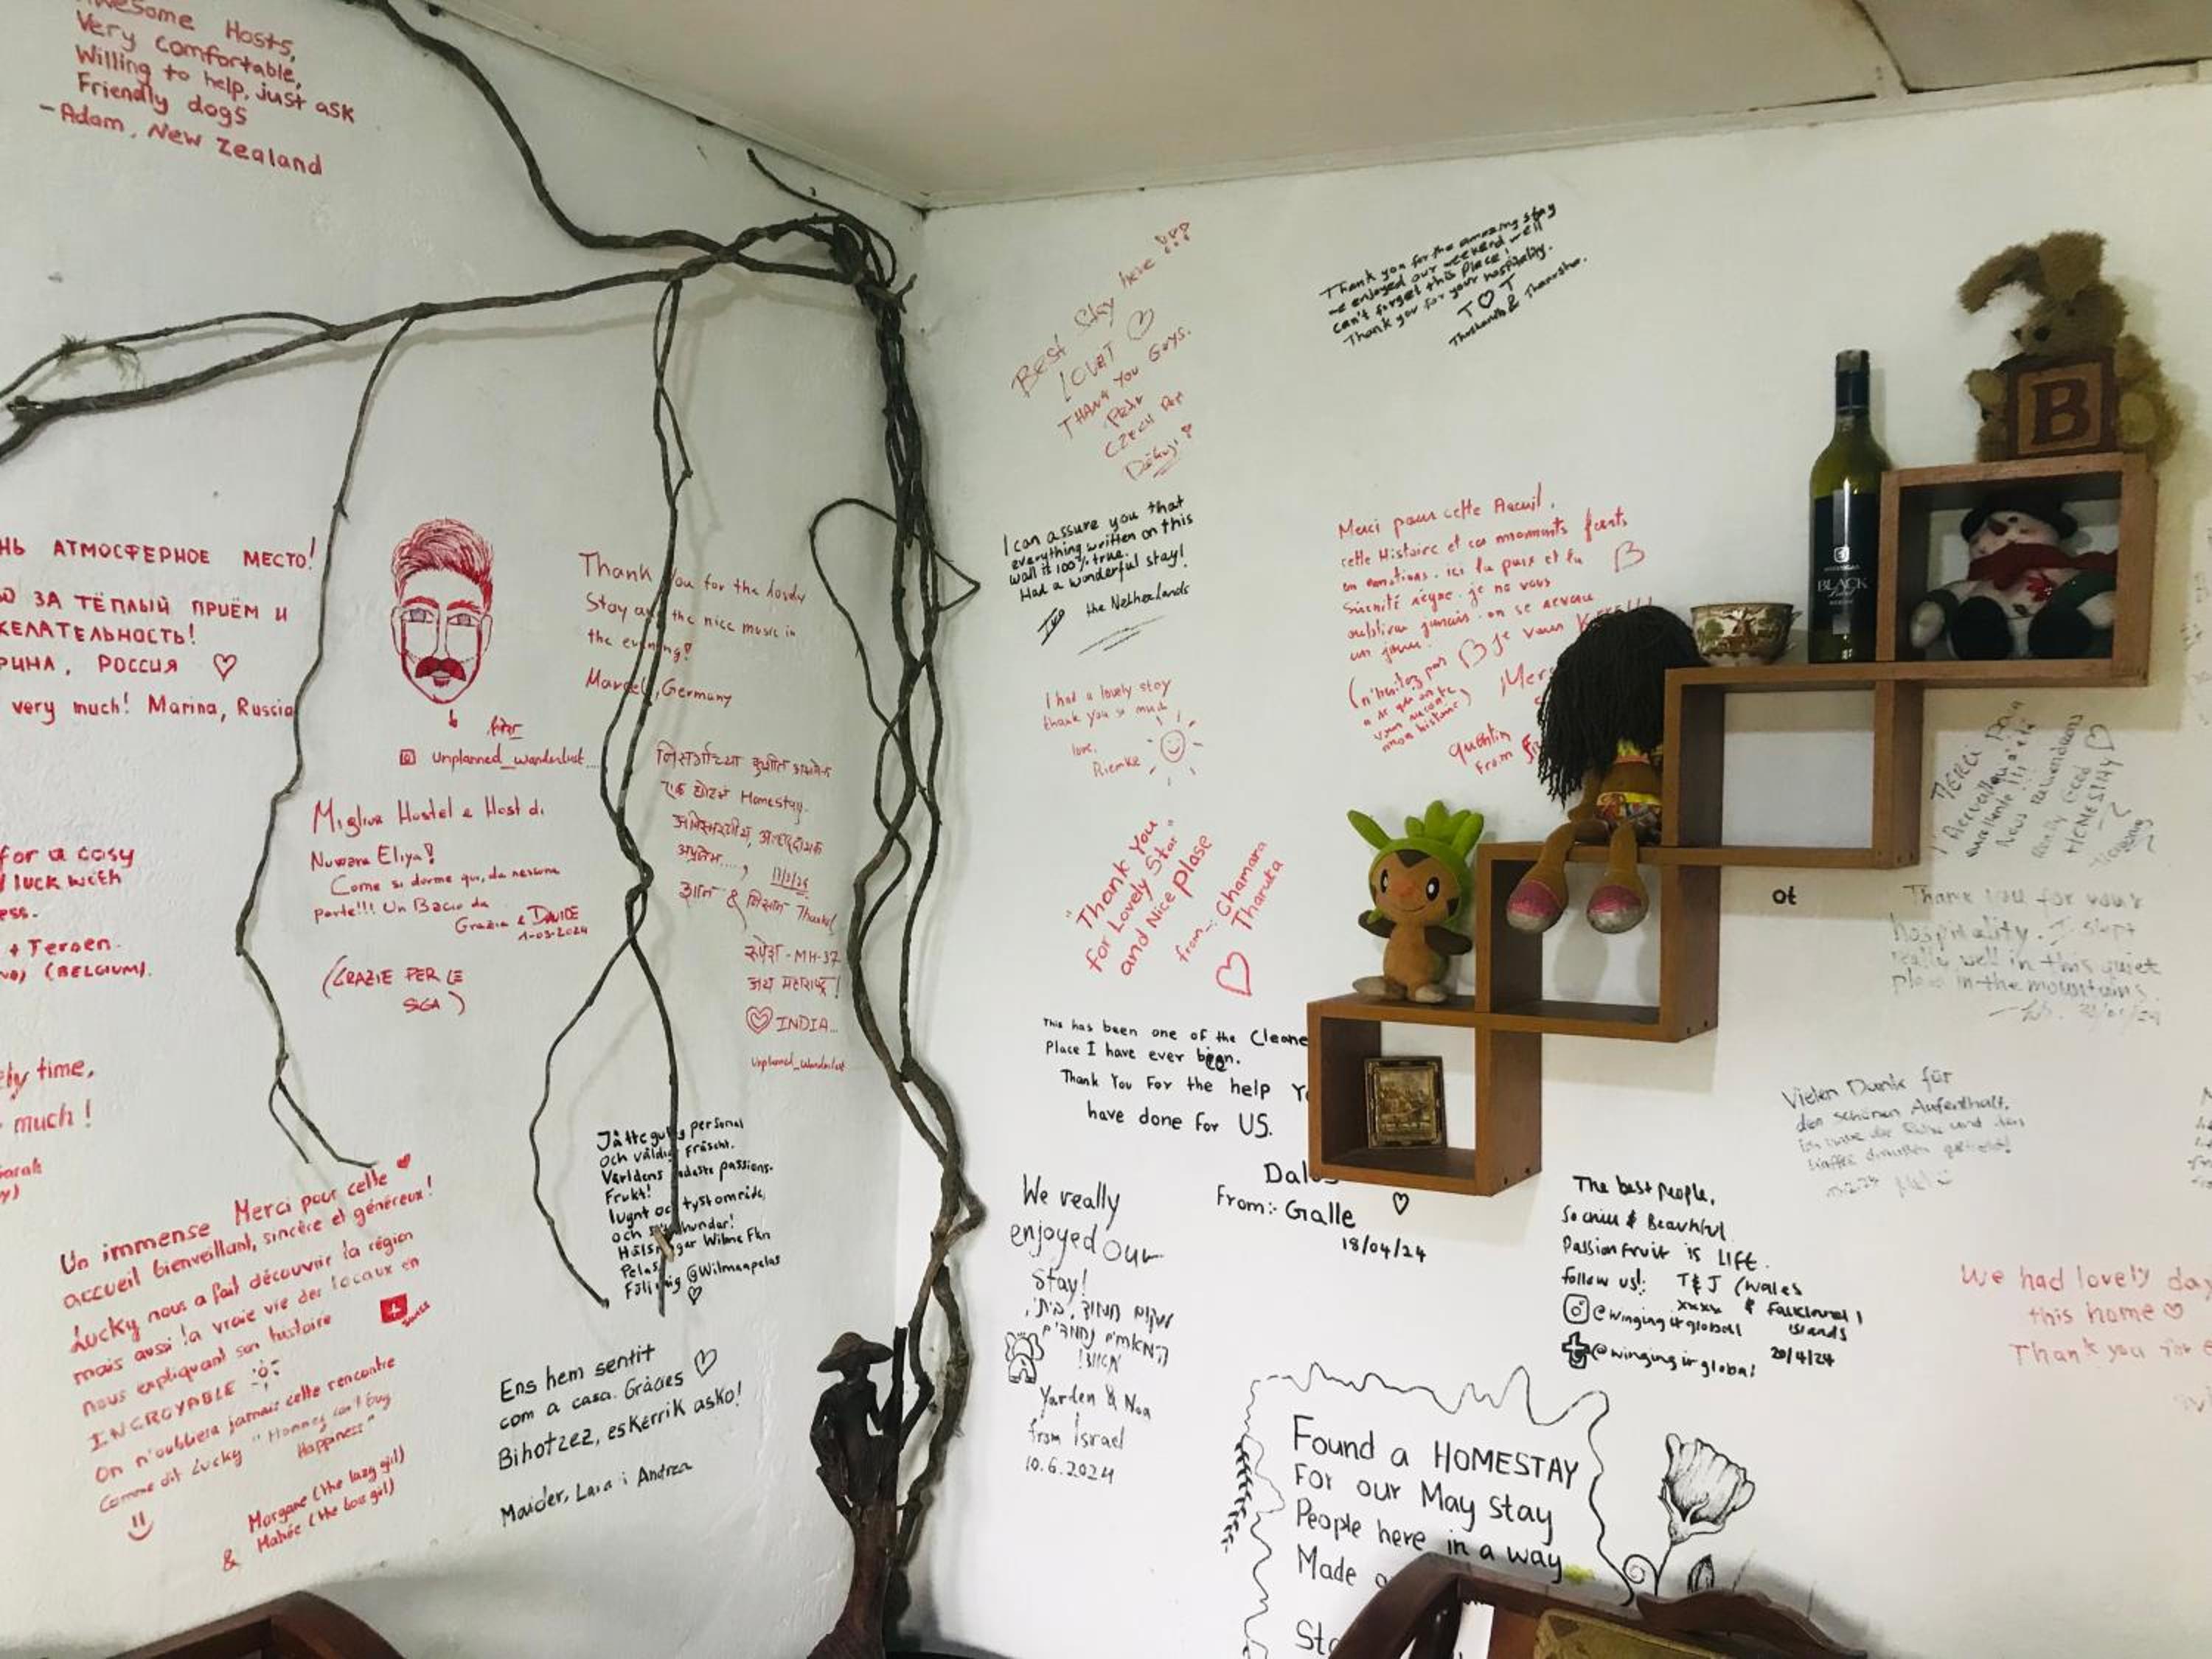 Awesome Hosts,
Very comfortable,
Willing to help, just ask
Friendly dogs
- Adam, New Zealand
НЬ АТМОСФЕРНОЕ МЕСТО!
О ЗА ТЁПЛЫЙ ПРИЁМ И
ЖЕЛАТЕЛЬНОСТЬ!
РИНА, РОССИЯ
very much! Marina, Russia
for a cosy
luck with
ess.
+ Jeroen
(BELGIUM).
ely time,
much!
Sarah
unplanned_wanderlust
Thank You for the lovely
Stay and the nice music in
the evening!
Marcel, Germany
Miglior Hostel e Host di
Nuwara Eliya!
Come si dorme qui, da nessuna
parte!!! Un Bacio da
Grazia e DAVIDE
1-03-2024
(GRAZIE PER LE
SIGA)
निसर्गाच्या कुशीत
एक छोटसं Homestay.
अविस्मरणीय,
अप्रतिम.....,
&
- MH-37
जय महाराष्ट्र!
INDIA...
unplanned_wanderlust
Un immense Merci pour cette
accueil bienveillant, sincère et généreux!
Lucky nous a fait découvrir la région
mais aussi la vraie vie des locaux en
nous expliquant son histoire
SWISS
INCROYABLE
On n'oubliera jamais cette rencontre
Comme dit Lucky "Money can't buy
Happiness"
Morgane (the lazy girl)
& Mahée (the boss girl)
Jättegullig personal
och väldigt fräscht.
Världens godaste passions-
frukt!
lugnt och tyst område,
och hundar!
Hälsningar Wilma
Pelas
Följ mig @Wilmaapelas
Ens hem sentit
com a casa. Gràcies
Bihotzez, eskerrik asko!
Maider, Laia i Andrea
Best Stay here !!!
LOVE IT
THANK YOU GUYS.
Petr
CZECH REP
Děkuji!
Thank you for the amazing stay
we enjoyed our weekend well
can't forget this Place!
Thank you for your hospitality.
T ♡ T
Tharshanth & Thanursha.
I can assure you that
everything written on this
wall is 100% true.
Had a wonderful stay!
the Netherlands
I had a lovely stay
thank you so much
love,
Riemke
"Thank You
for Lovely Star"
and Nice plase
from:- Chamara
Tharuka
Merci pour cette Acceuil,
cette Histoire et ces moments forts
en émotions. ici la paix et la
Sérénité règne. je ne vous
oublierai jamais. on se revoie
un jour.
Quentin
from
This has been one of the Cleane
Place I have ever been.
Thank You For the help Yo
have done for US.
From:- Galle
18/04/24
We really
enjoyed our
stay!
Yarden & Noa
from Israel
10.6.2024
The best people,
So chill & Beautiful
Passionfruit is LIFE.
follow us!: T&J (Wales
xxxx & Falkland
Islands
@wingingitglobal
@wingingitglobal 20/4/24
Found a HOMESTAY
For our May stay
People here in a way
Made a
Sta
BLACK
B
MERCI Pour
l'Accueil
excellente!!!
Nous Reviendrons
Really Good
HOMESTAY
ot
Thank you for your
hospitality. I slept
really well in this quiet
place in the mountains.
Vielen Dank für
den schönen Aufenthalt.
Ich habe die Ruhe und den
Kaffee draußen genießt!
We had lovely day
this home
Thank you for